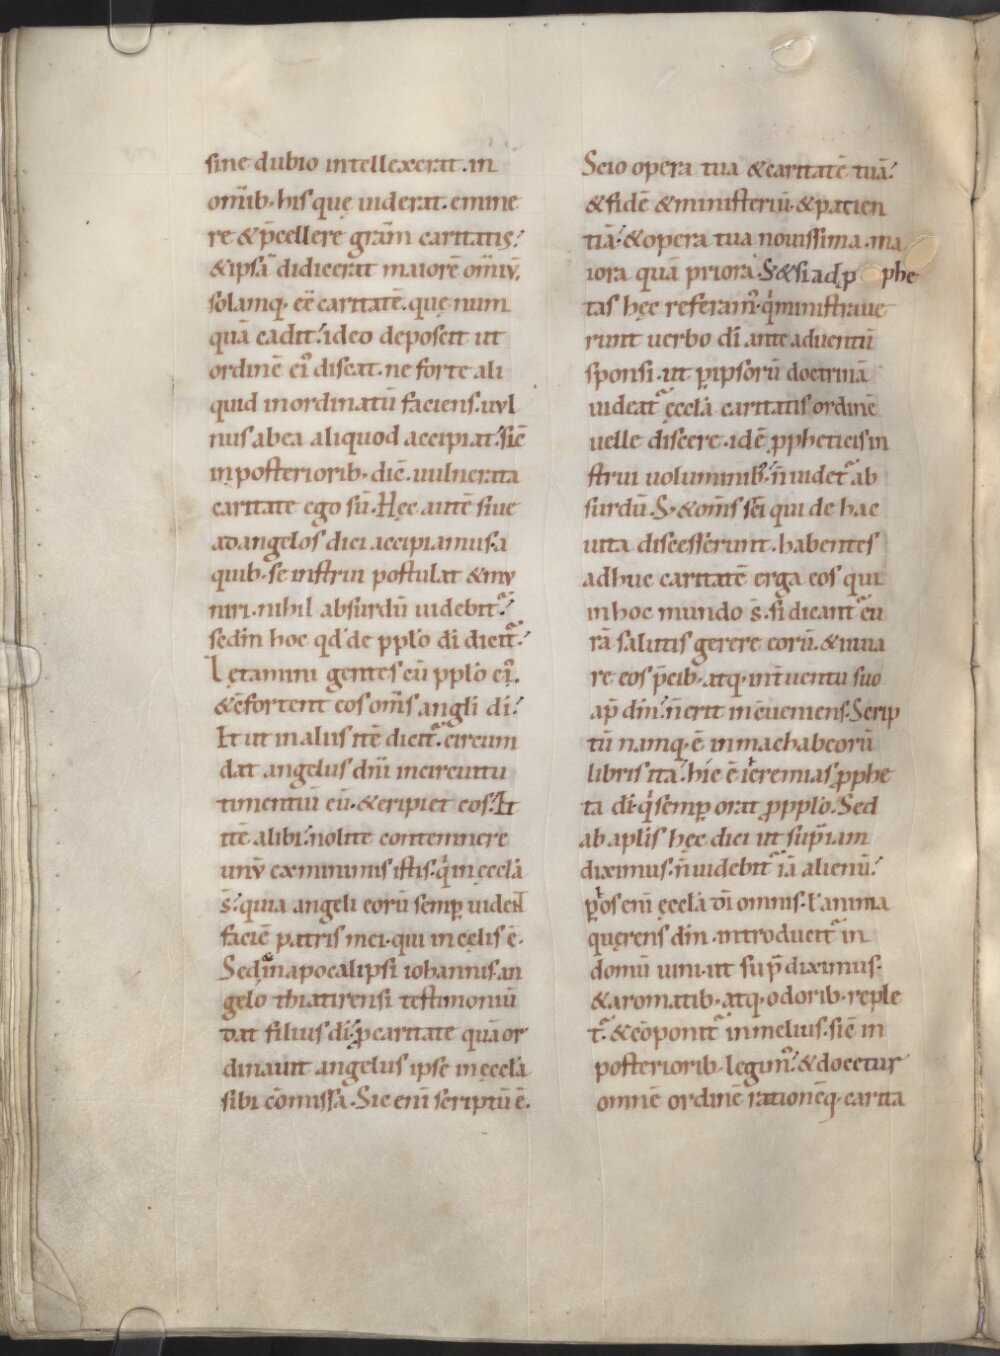 sine dubio intellexerat. in
om̅ib· his quę uiderat. emine
re & p̅cellere gram̅ caritatis?
& ipsa̅ didicerat maiore̅ om̅iu̅,
solamq· ee̅ caritate̅. quę num
qua̅ cadit? ideo deposcit ut
ordine̅ ei᾿ discat. ne forte ali
quid inordinatu̅ faciens. uul
nus ab ea aliquod accipiat? sic̅
in posteriorib· dic̅. uulnerata
caritate ego su̅. Hęc aute̅ siue
ad angelos dici accipiamus. a
quib· se instrui postulat & mu
niri. nihil absurdu̅ uidebit᷑?
sed in hoc qd̕ de pplo di̅ dicit᷑?
Lętamini gentes cu̅ pplo ei᾿.
& c̅fortent eos om̅s angli di̅?
Et ut in alus ite̅ dicit᷑. circum
dat angelus dn̅i in circuitu
timentiu̅ eu̅. & eripiet eos. Et
ite̅ alibi? nolite contemnere
unu̅ ex minimis istis. qi in ęccla̅
s̅? quia angeli eoru̅ semp̱ uident
facie̅ patris mei. qui in cęlis e̅.
Sed in apocalipsi iohannis. an
gelo thiatirensi testimoniu̅
dat filius di̅? p̱ caritate qua̅ or
dinauit angelus ipse in ęccla̅
sibi co̅missa. Sic eni̅ scriptu̅ e̅.
Scio opera tua & caritate̅ tua̅?
& fide̅ & ministeriu̅. & patien
tia̅? & opera tua nouissima. ma
iora qua̅ priora. S; & si ad p̱phe
tas hęc referam᾿. qi ministraue
runt uerbo di̅ ante aduentu̅
sponsi. ut p̱ ipsoru̅ doctrina̅
uideat᷑ ęccla̅ caritatis ordine̅
uelle discere. ide̅ p̱pheticis in
strui uoluminib᾿? n̅ uidet᷑ ab
surdu̅. S; & om̅s sc̅i qui de hac
uita discesserunt. habentes
adhuc caritate̅ erga eos qui
in hoc mundo s̅. si dicant᷑ cu
ra̅ salutis gerere eoru̅. & iuua
re eos p̅cib· atq· int̕uentu suo
ap̅ dm̅? n̅ erit inc̅ueniens. Scrip
tu̅ namq· e̅ in machabeoru̅
libris ita? hic e̅ ieremias p̱phe
ta di̅. qi semp̱ orat p̱ pplo. Sed
ab aplis hęc dici ut sup̅ iam
diximus. n̅ uidebit᷑ ia̅ alienu̅?
p̱ os eni̅ ęccla̅ di̅ omnis. l̕ anima
quęrens dm̅. introducit᷑ in
domu̅ uini. ut sup̅ diximus.
& aromatib· atq· odorib· reple
t᷑. & co̅ponit᷑ in melius. sic̅ in
posteriorib· legim᾿? & docetur
omne̅ ordine̅ ratione̅q· carita